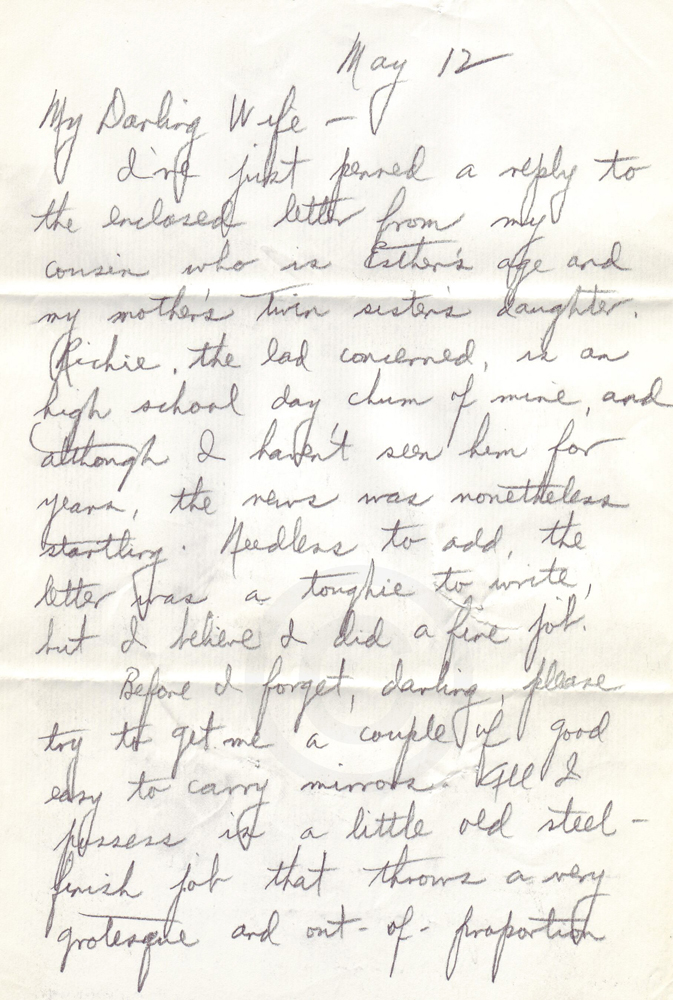 May 12
My Darling Wife –
I've just penned a reply to
the enclosed letter from my
cousin who is Esther's age and
my mother's twin sister's daughter.
Richie, the lad concerned, is an
high school day chum of mine, and
although I haven't seen him for
years, the news was nonetheless
startling. Needless to add, the
letter was a toughie to write,
but I believe I did a fine job.
Before I forget, darling, please
try to get me a couple of good
easy to carry mirrors. All I
possess is a little old steel-
finish job that throws a very
grotesque and out-of-proportion